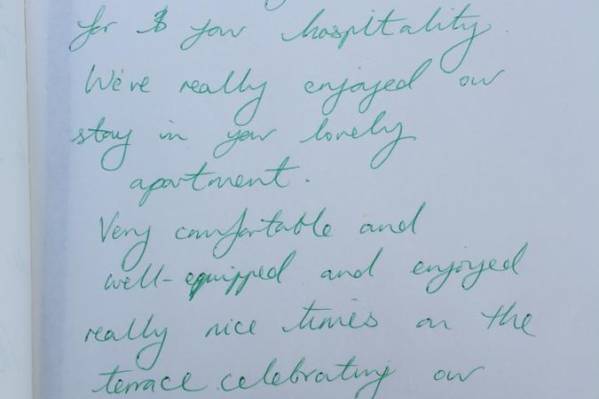 for your hospitality
We've really enjoyed our
stay in your lovely
apartment.
Very comfortable and
well-equipped and enjoyed
really nice times on the
terrace celebrating our